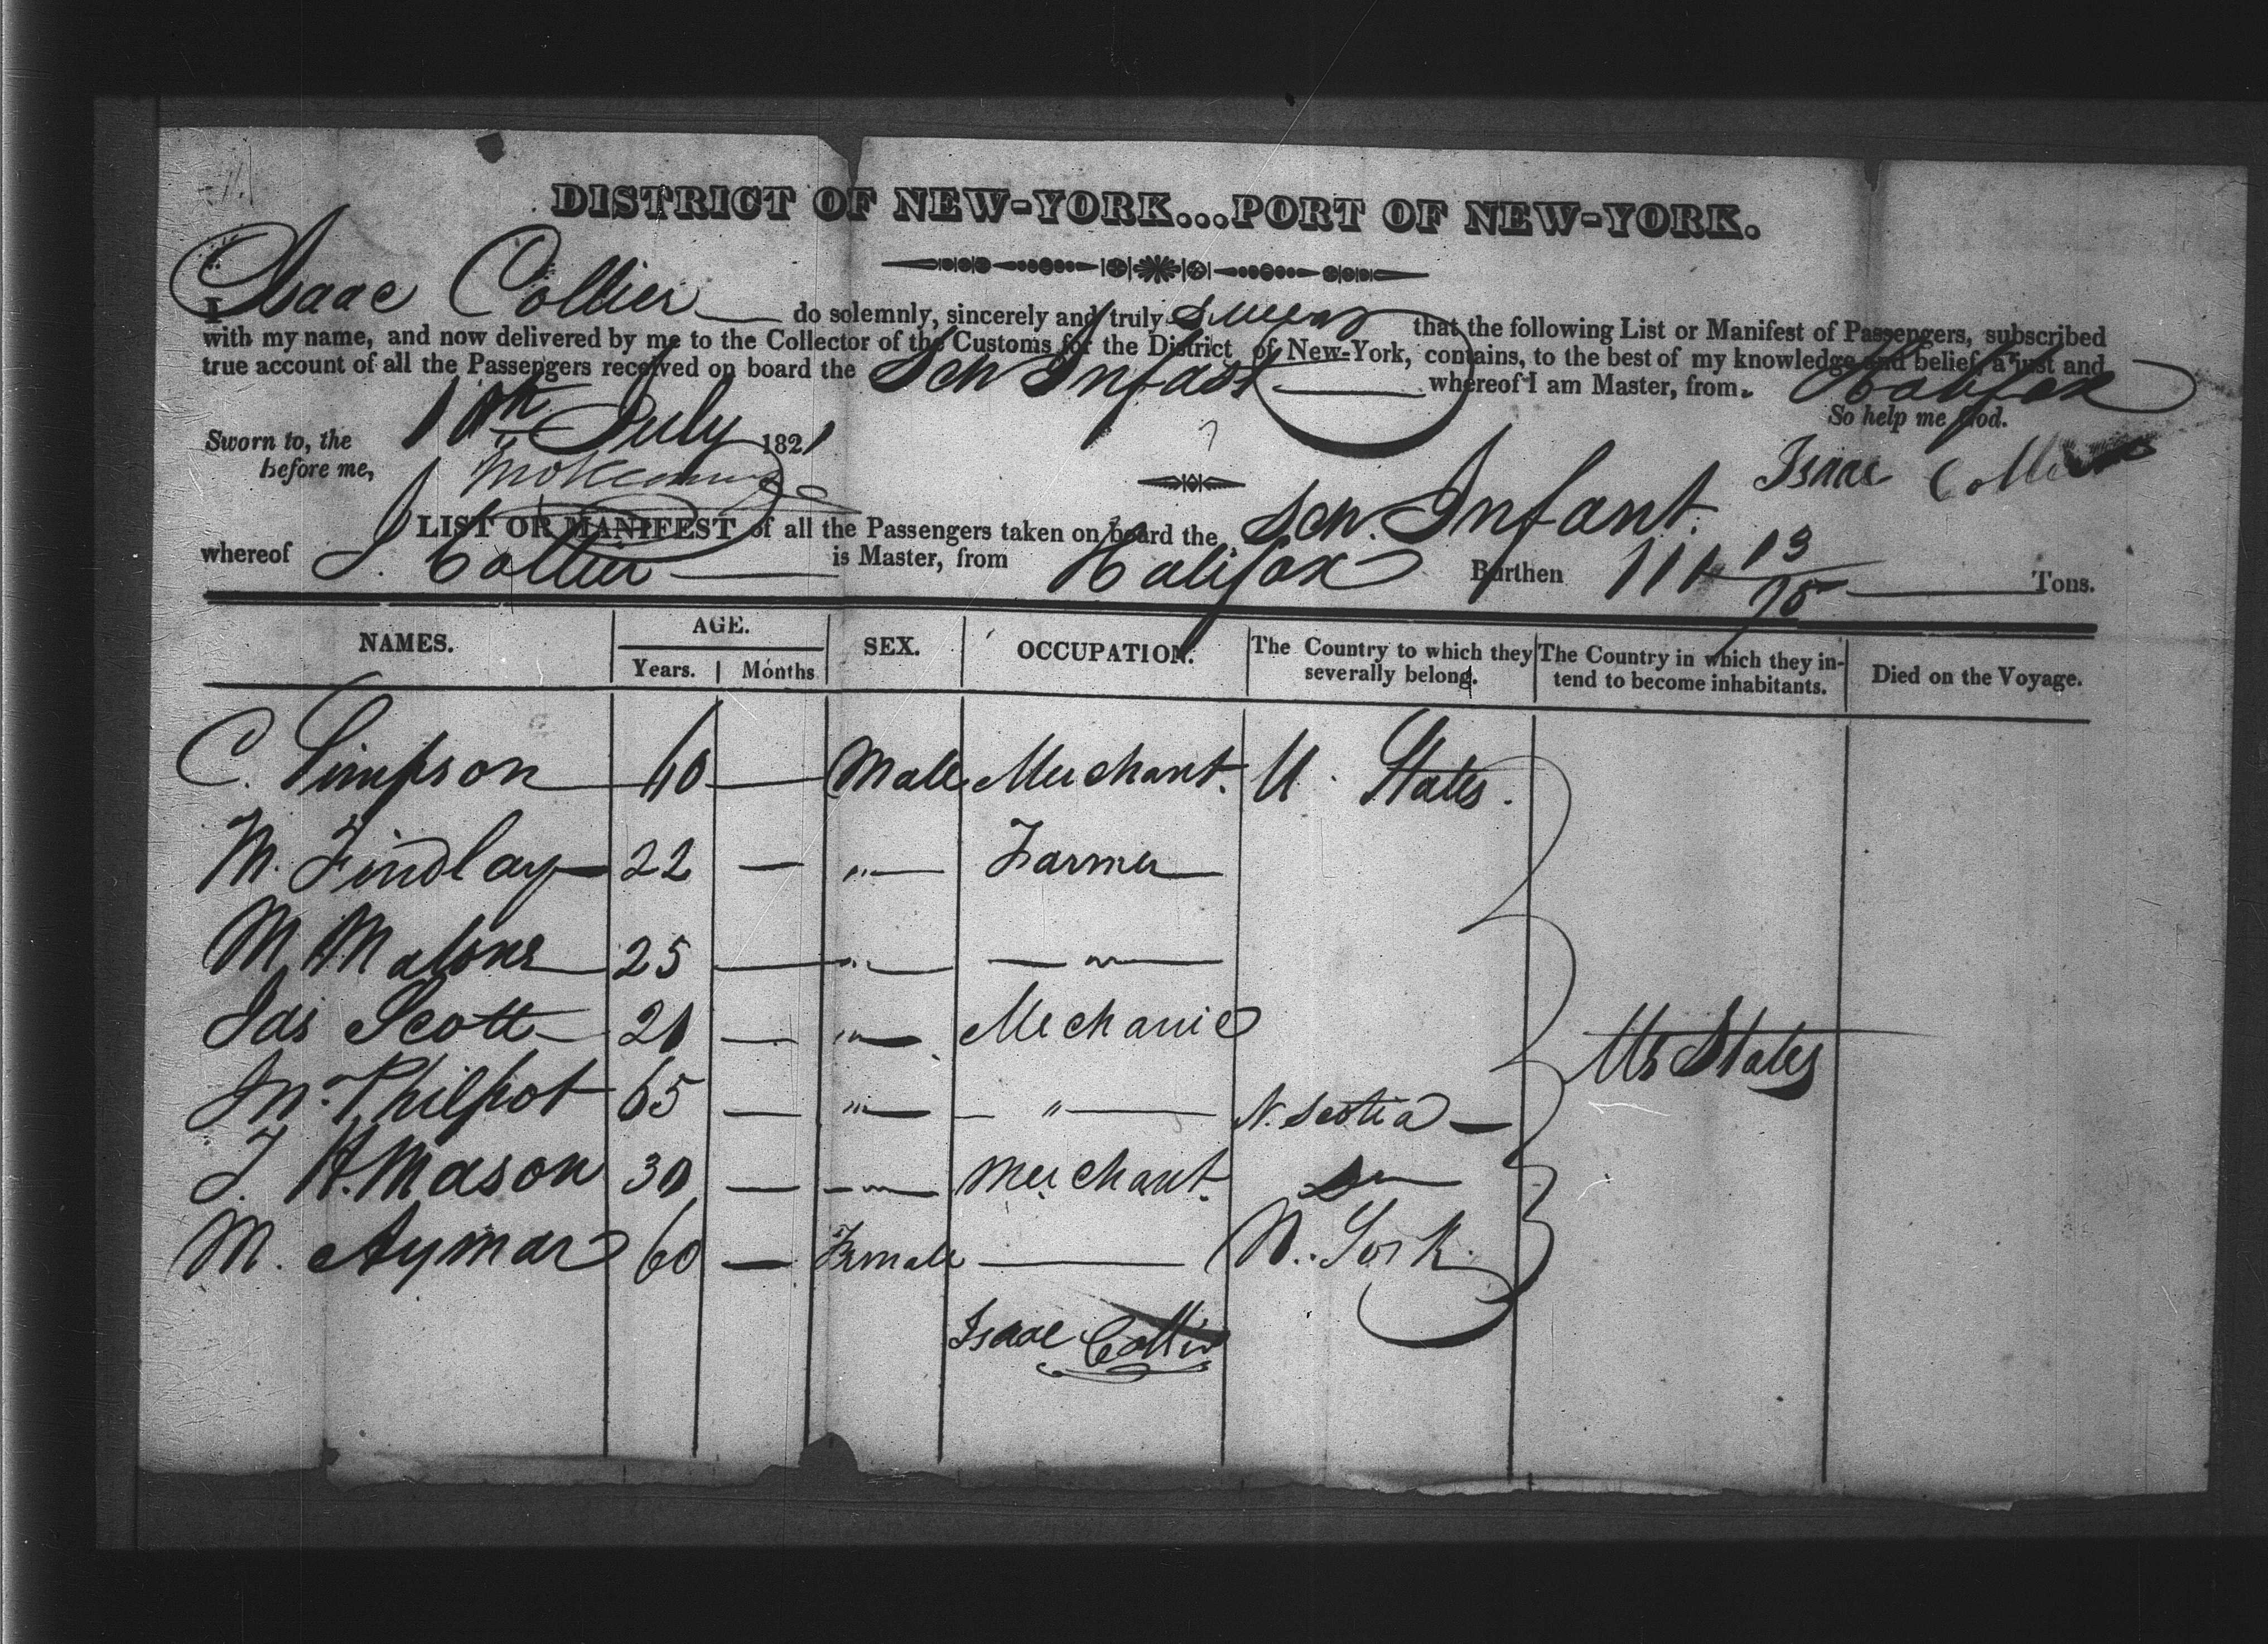 DISTRICT OF NEW-YORK...PORT OF NEW-YORK.
I Isaac Collier do solemnly, sincerely and truly swear that the following List or Manifest of Passengers, subscribed
with my name, and now delivered by me to the Collector of the Customs for the District of New-York, contains, to the best of my knowledge and belief, a just and
true account of all the Passengers received on board the Sch Infant whereof I am Master, from Halifax
So help me God.
Sworn to, the 10th July 1821
before me, Isaac Collier
LIST OR MANIFEST of all the Passengers taken on board the Sch. Infant.
whereof J. Collier is Master, from Halifax Burthen 111 13/95 Tons.
NAMES. AGE. SEX. OCCUPATION. The Country to which they severally belong. The Country in which they intend to become inhabitants. Died on the Voyage.
Years. Months
C. Simpson 40 — Male Merchant. U. States.
M. Findlay 22 — " Farmer
M. Malone 25 — " — " —
Jas Scott 21 — " Mechanic Us States
Jn. Philpot 65 — " — " — N. Scotia
J. H. Mason 30 — " Merchant.
M. Aymar 60 — Female — N. York.
Isaac Collier